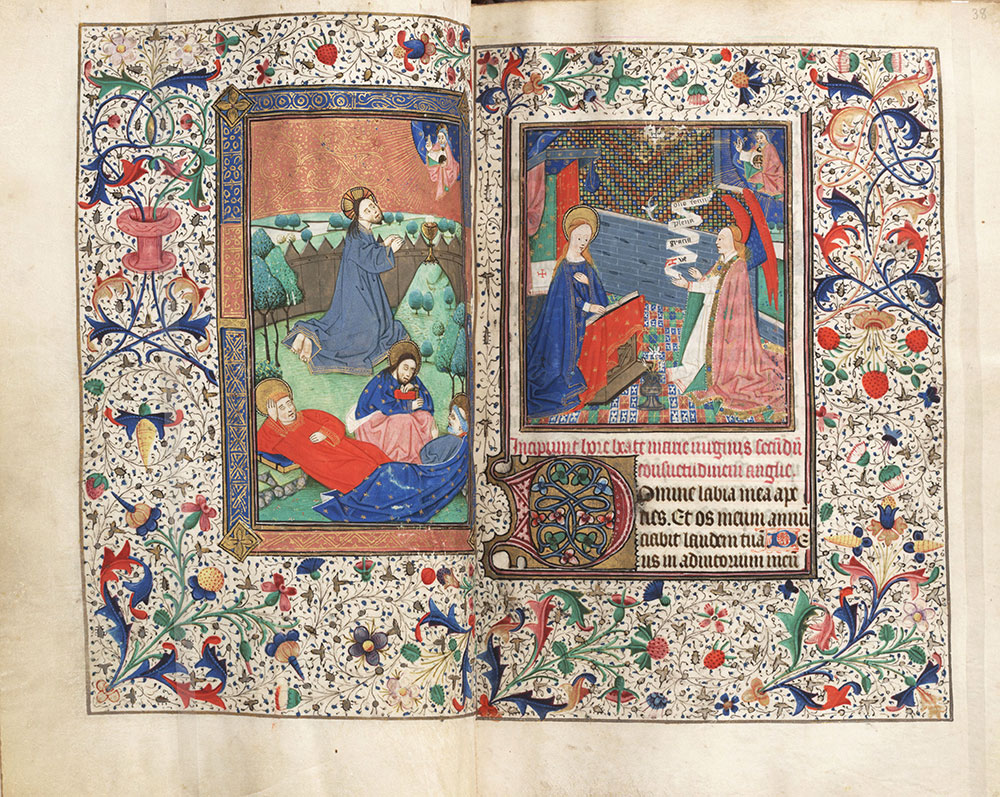 38
plena
gracia
Ave
Incipiunt hore beate marie virginis secundū
consuetudinem anglie.
Domine labia mea ape
ries. Et os meum annu
ciabit laudem tuā. De
us in adiutorium meū